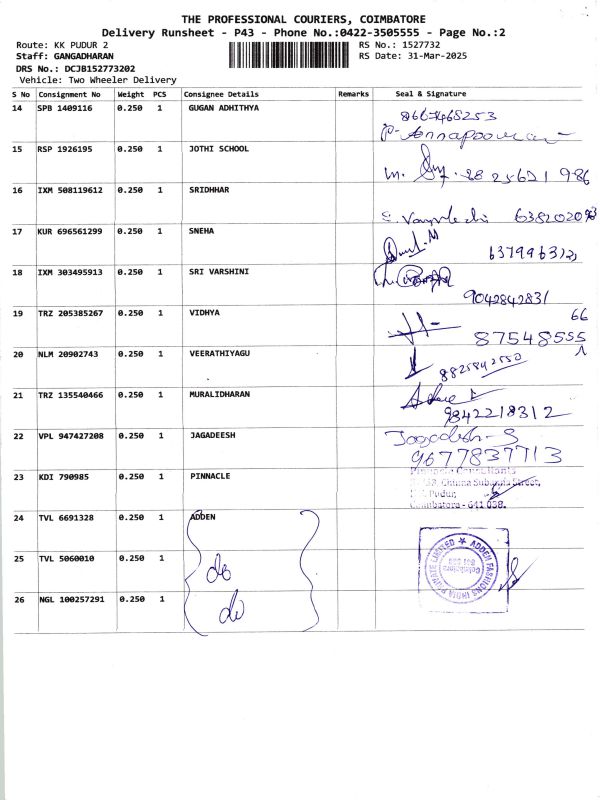 THE PROFESSIONAL COURIERS, COIMBATORE
Delivery Runsheet - P43 - Phone No.:0422-3505555 - Page No.:2
Route: KK PUDUR 2
RS No.: 1527732
Staff: GANGADHARAN
RS Date: 31-Mar-2025
DRS No.: DCJB152773202
Vehicle: Two Wheeler Delivery
S No Consignment No Weight PCS Consignee Details Remarks Seal & Signature
14 SPB 1409116 0.250 1 GUGAN ADHITHYA
15 RSP 1926195 0.250 1 JOTHI SCHOOL
16 IXM 508119612 0.250 1 SRIDHHAR
17 KUR 696561299 0.250 1 SNEHA
18 IXM 303495913 0.250 1 SRI VARSHINI
9042842831
19 TRZ 205385267 0.250 1 VIDHYA
66
87548555
20 NLM 20902743 0.250 1 VEERATHIYAGU
8825842550
21 TRZ 135540466 0.250 1 MURALIDHARAN
9842218312
22 VPL 947427208 0.250 1 JAGADEESH Jagadesh-S
9677837713
23 KDI 790985 0.250 1 PINNACLE Pinnacle Consultants
Street,
Pudur,
Coimbatore - 641 038.
24 TVL 6691328 0.250 1 ADDEN
ADDEN FASHIONS INDIA PRIVATE LIMITED
Coimbatore
25 TVL 5060010 0.250 1 do
26 NGL 100257291 0.250 1 do